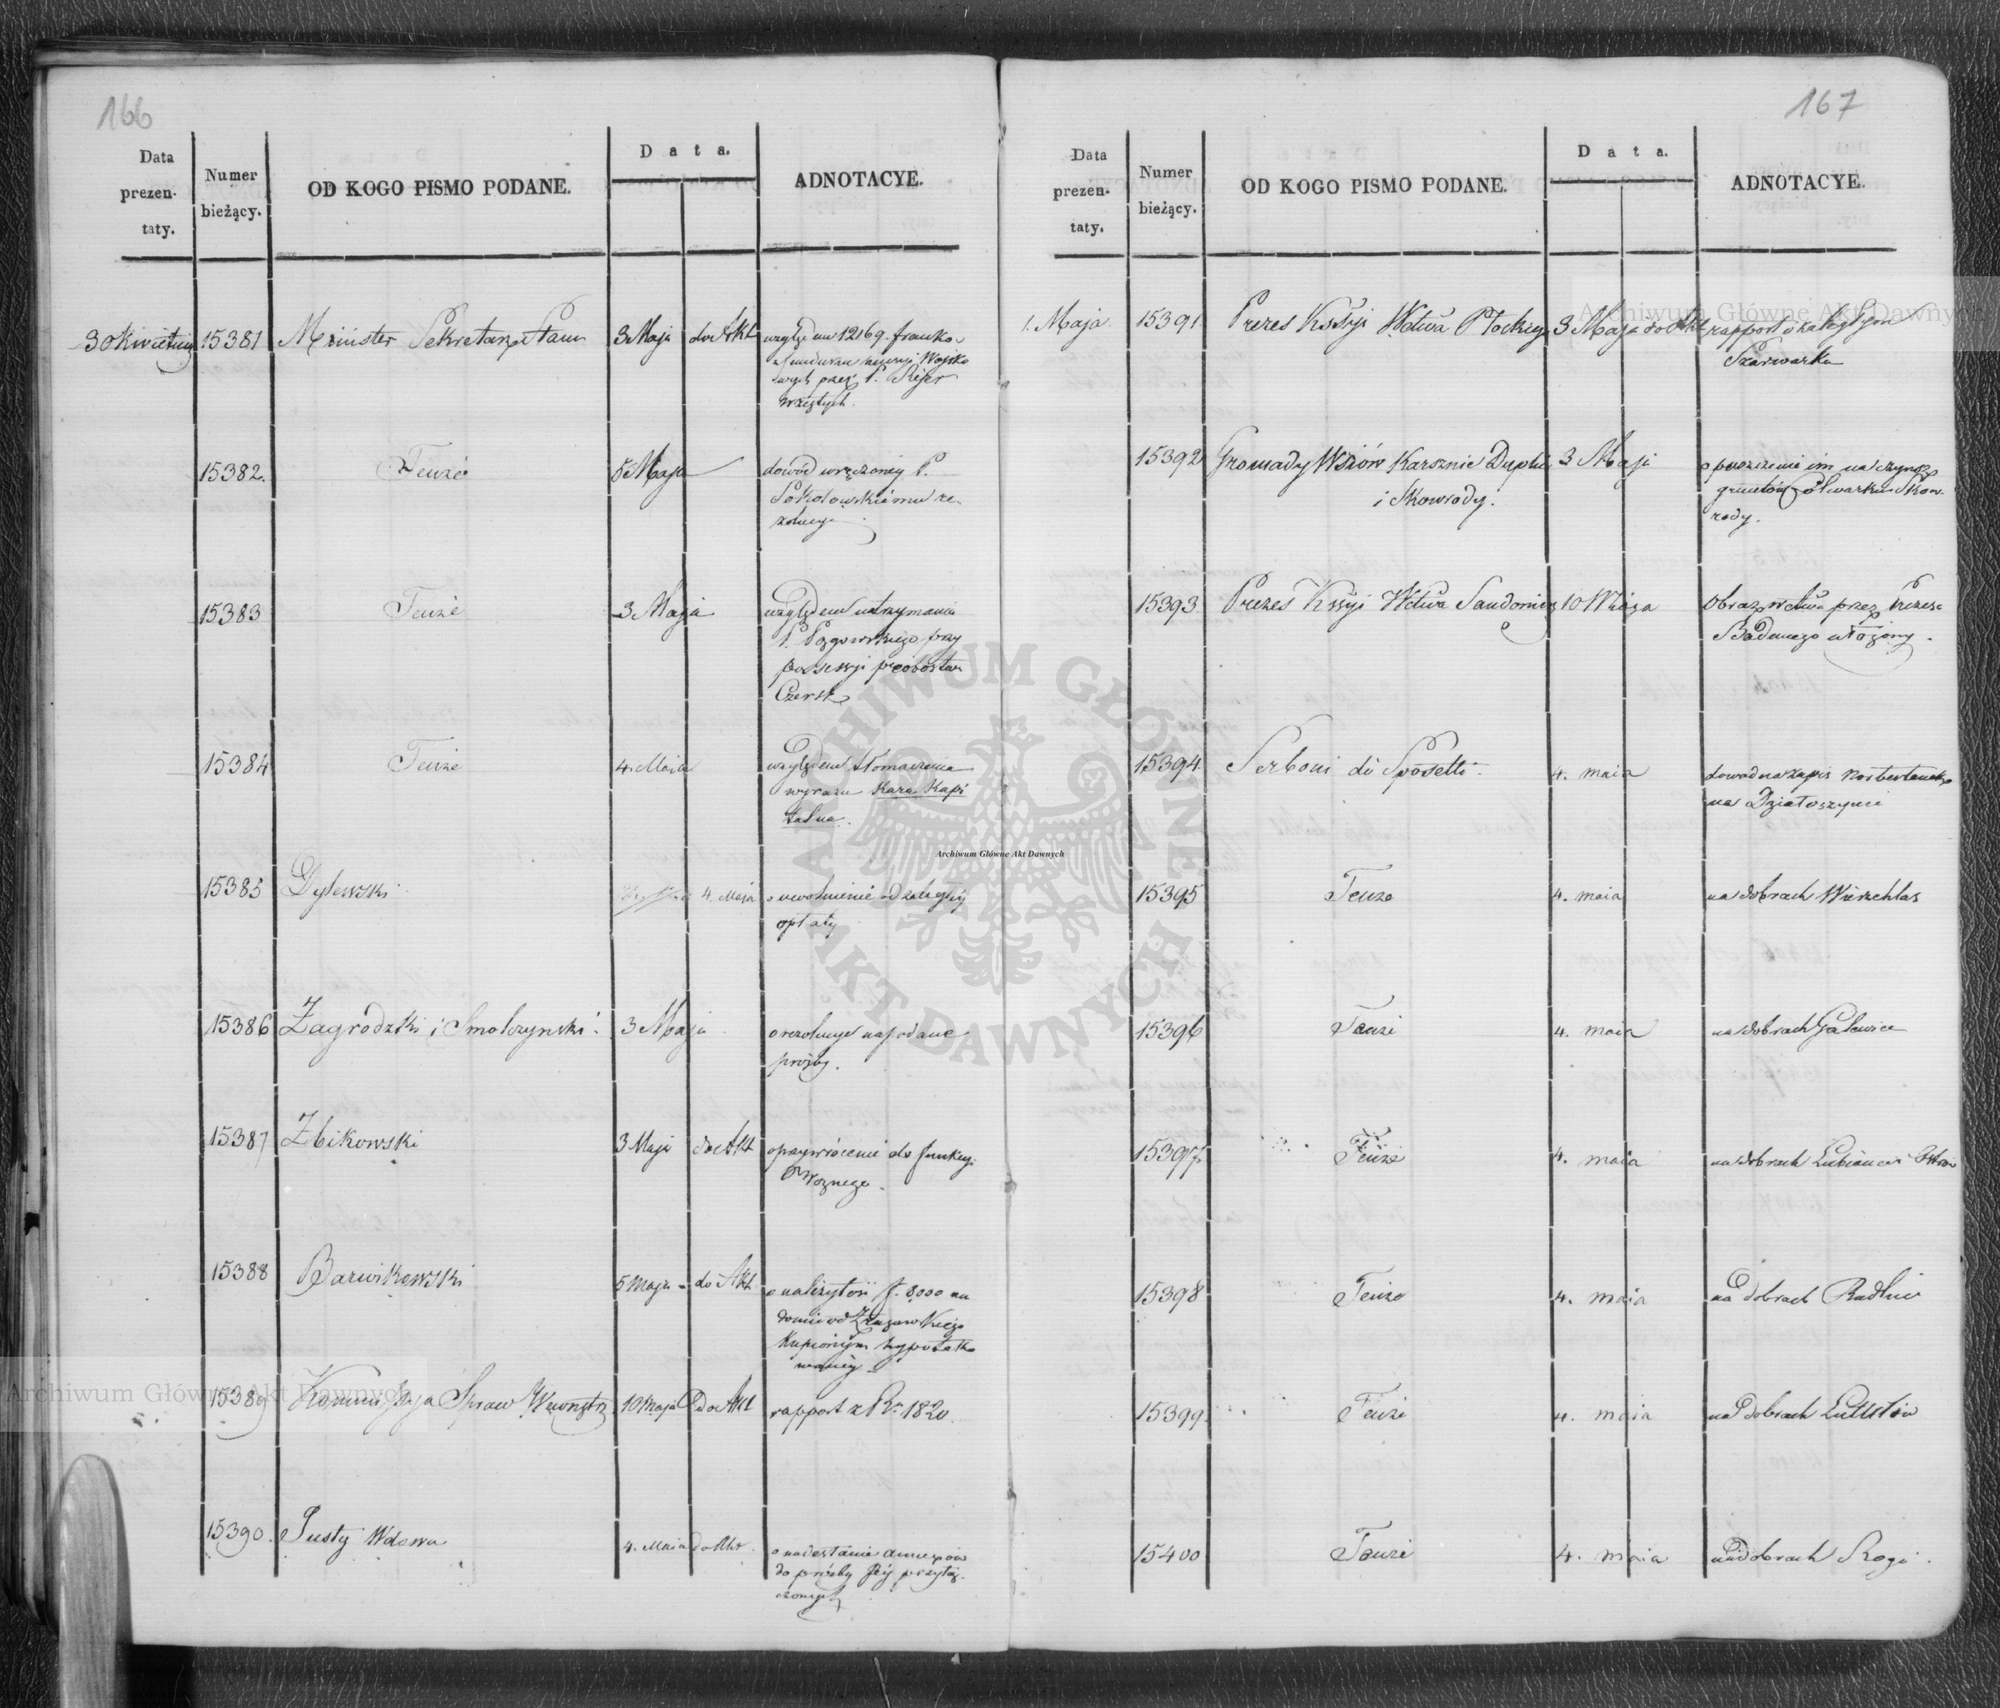 166
Data prezen- taty.
Numer bieżący.
OD KOGO PISMO PODANE.
Data.
ADNOTACYE.
30 Kwietnia 15381 Minister Sekretarz Stanu 3 Maja do Akt względem 12169 franków
Wojsko
wych przez P.
wziętych.
15382. Tenże 5 Maja dowód wręczoney P.
Sokołowskiemu re-
zolucyi
15383 Tenże 3 Maja względem utrzymania
P. Pągowskiego przy
possessyi probostwa
Czersk
15384 Tenże 4. Maia względem tłomaczenia
wyrazu Kara Kapi
talna.
15385 Dylewski 4. Maja o uwolnienié od zaległéy
opłaty
15386 Zagrodzki i Smolczynski. 3 Maja o rezolucye na podane
prośby.
15387 Zbikowski 3 Maja do Akt o przywrócenié do funkcyi
Woznego.
15388 Barwikowski 5 Maja - do Akt. o należytości f. 8000 na
domie od
Kupionym hypoteko
waney.
15389 Kommissyja Spraw Wewnętrz. 10 Maja do Akt rapport z Ru 1820.
15390. Pusty Wdowa 4. Maia do Akt. o nadesłanie annexów
do prośby Jéy przyłą-
czonych
167
Data prezen- taty.
Numer bieżący.
OD KOGO PISMO PODANE.
Data.
ADNOTACYE.
1. Maja. 15391. Prezes Kssyi Wdtwa Płockieg 3 Maja do Akt rapport o zaległym
Szarwarku
15392 Gromady Wsiów Karsznic Duplic 3 Maja o puszczenie im na czynsz
i Skowrody. gruntów folwarku Skow-
rody.
15393 Prezes Kssyi Wdtwa Sandomirs 10 Maja Obraz Wdtwa przez Prezesa
Badeniego ułożony.
15394. Serboni di Sposetti. 4. maia dowod na zapis
na Działoszynie
15395 Tenze 4. maia na dobrach Wierzchlas
15396 Tenze 4. maia na dobrach Galewice
15397. Tenze 4. maia na dobrach
15398 Tenze 4. maia na dobrach
15399. Tenze 4. maia na dobrach Lututów
15400 Tenze 4. maia na dobrach
Archiwum Główne Akt Dawnych
ARCHIWUM GŁÓWNE AKT DAWNYCH
Archiwum Główne Akt Dawnych
Archiwum Główne Akt Dawnych